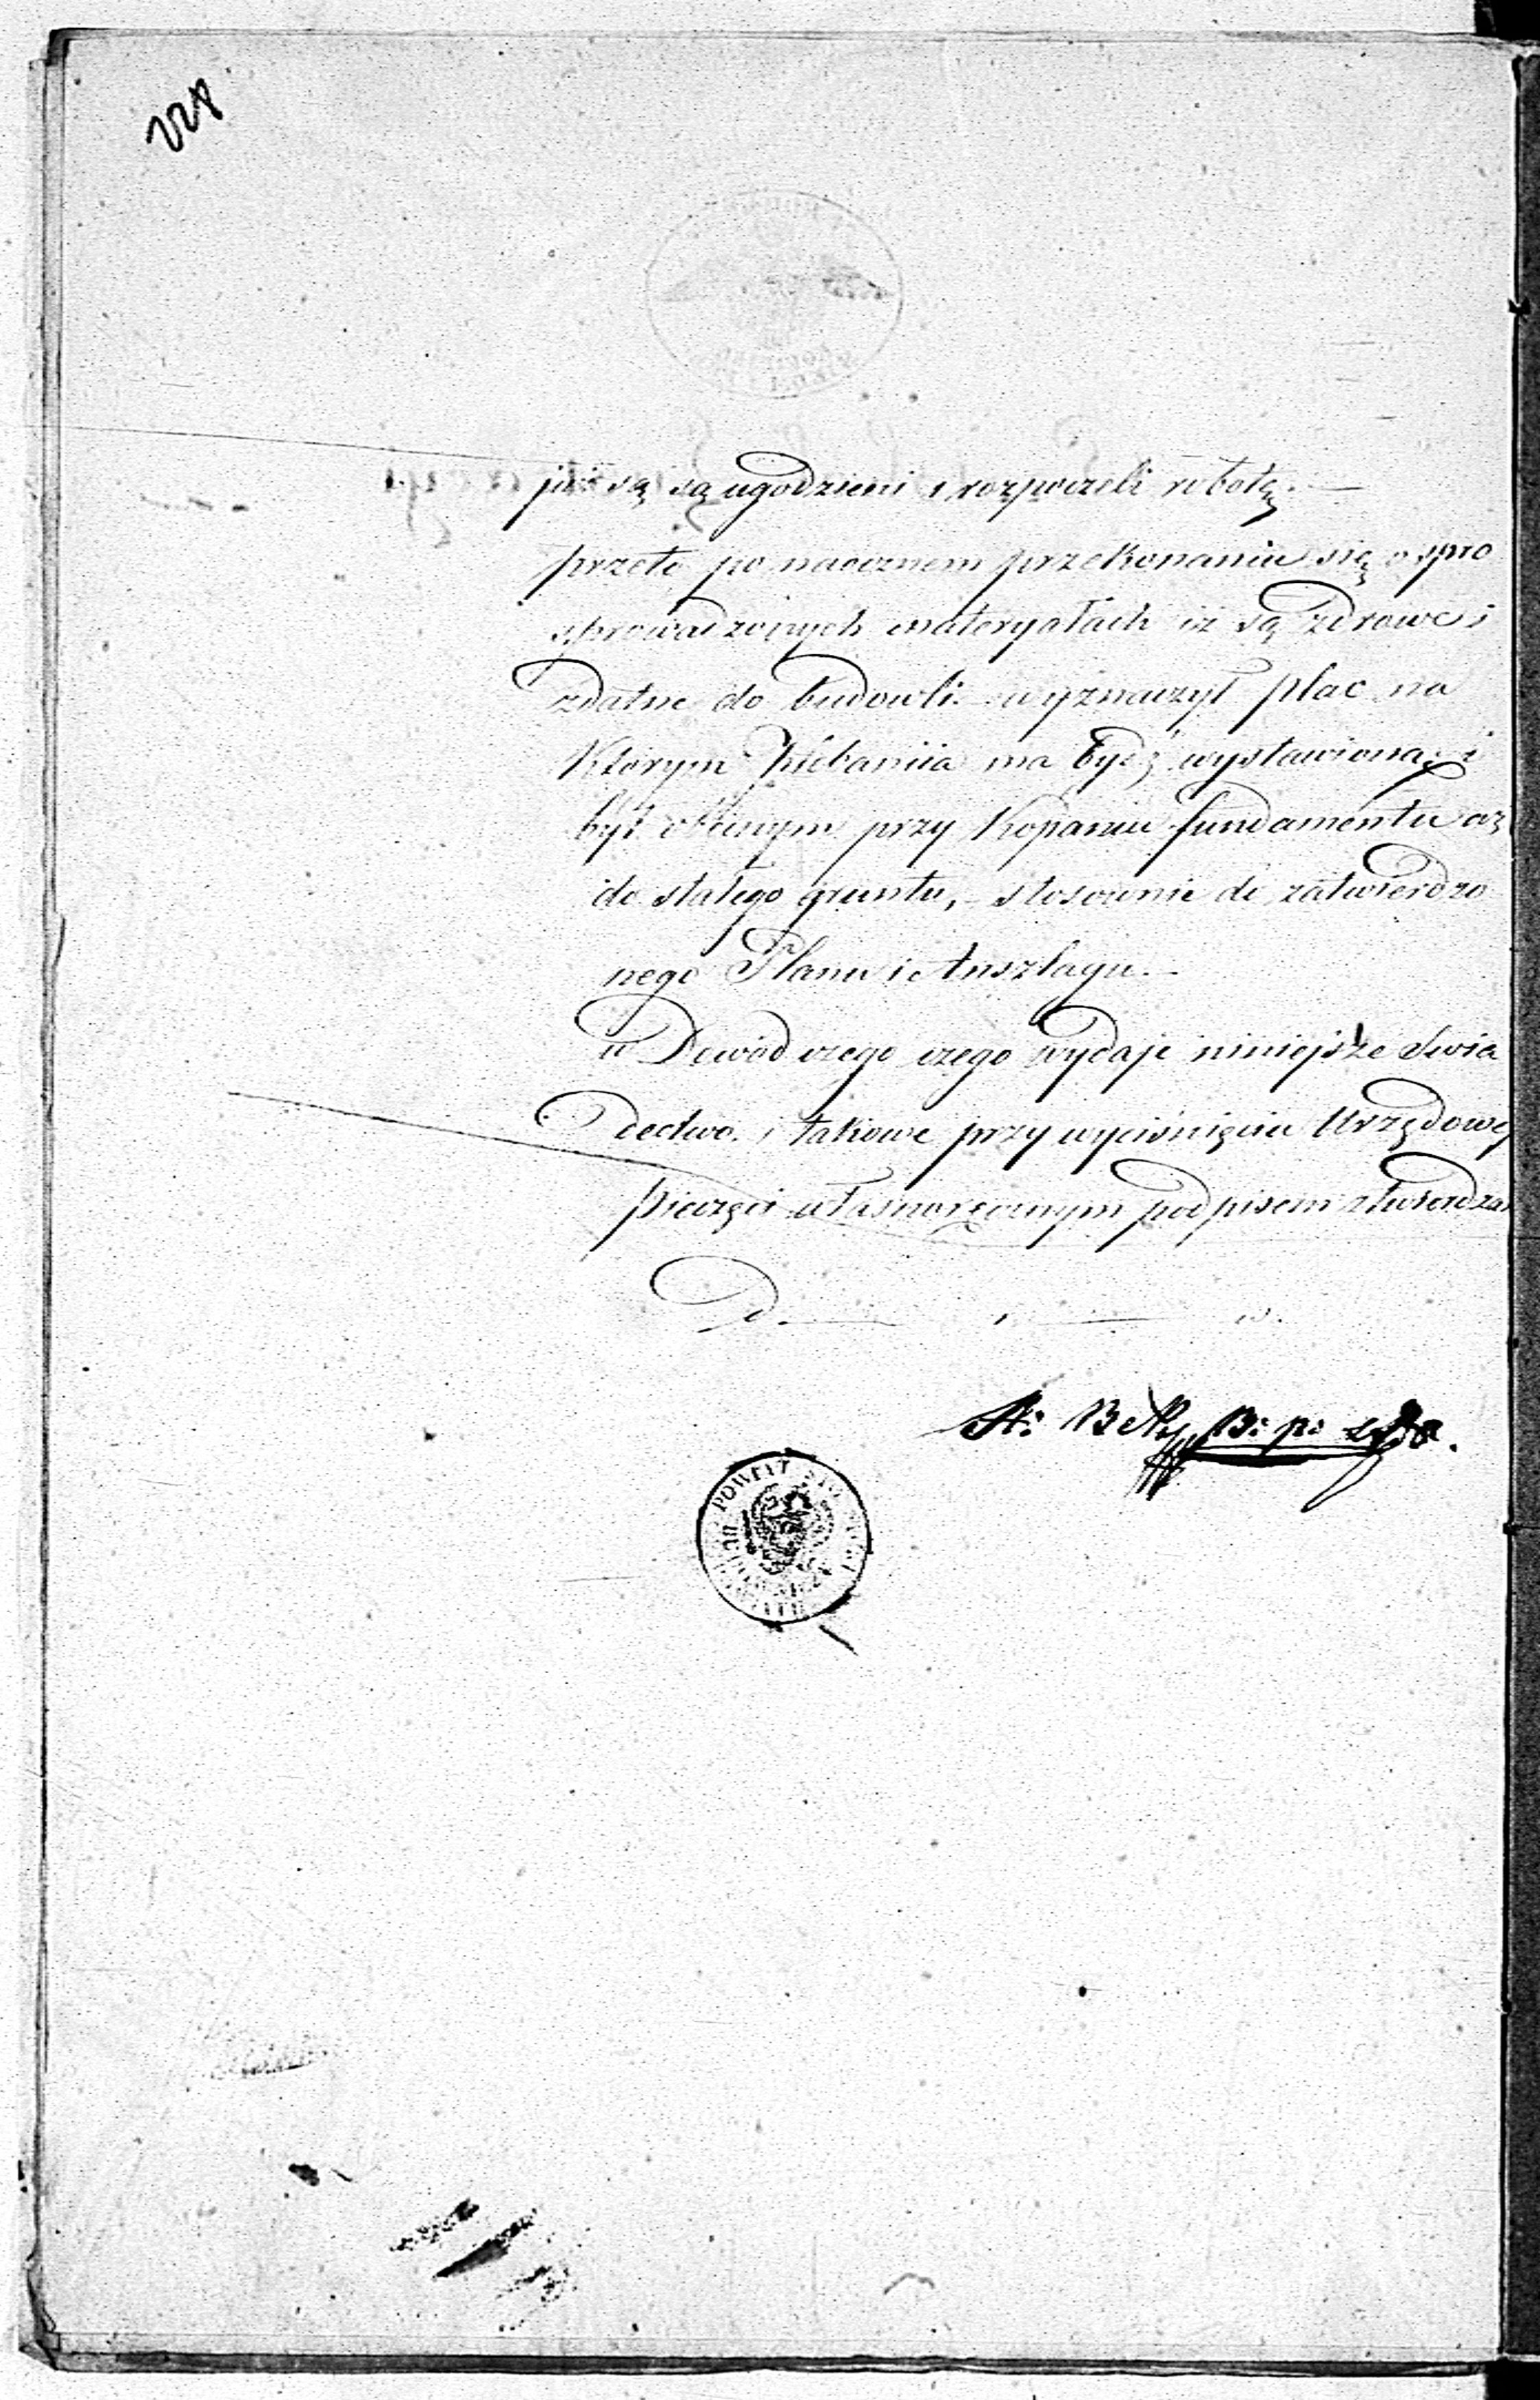 228
już są są ugodzieni i rozpoczeli robotę. —
przeto po naocznem przekonaniu się o spro
sprowadzonych materyałach iż są zdrowe i
zdatne do budowli. wyznaczył plac na
Którym Plebaniia ma bydź wystawiona. i
był obecnym przy Kopaniu fundamentu aż
do stałego gruntu, - stosownie do zatwierdzo
nego Planu i Anszlagu. -
w Dowód czego czego wydaje niniejsze Swia
dectwo. i takowe przy wyciśnięciu Urzędowej
Pieczęci własnoręcznym podpisem ztwierdza
D. — , — w.
POWIAT